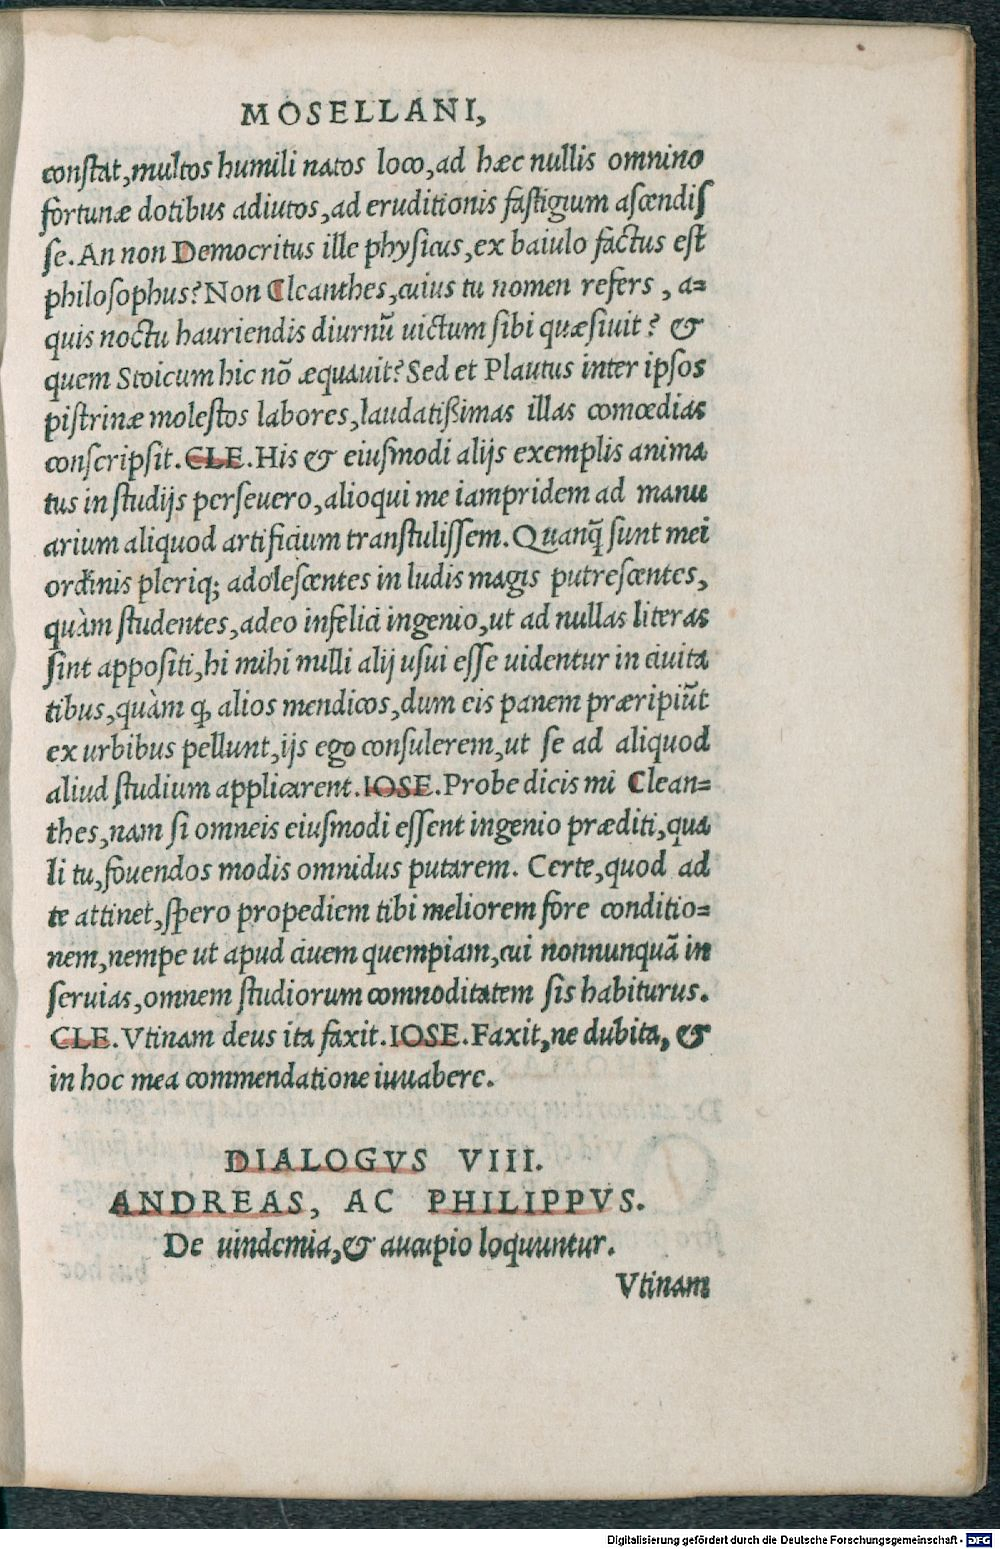 MOSELLANI,
constat, multos humili natos loco, ad hæc nullis omnino
fortunæ dotibus adiutos, ad eruditionis fastigium ascendis
se. An non Democritus ille physicus, ex baiulo factus est
philosophus? Non Cleanthes, cuius tu nomen refers, a=
quis noctu hauriendis diurnũ uictum sibi quæsiuit? &
quem Stoicum hic nõ æquauit? Sed et Plautus inter ipsos
pistrinæ molestos labores, laudatißimas illas comœdias
conscripsit. CLE. His & eiusmodi alijs exemplis anima
tus in studijs perseuero, alioqui me iampridem ad manu
arium aliquod artificium transtulissem. Quanq̃ sunt mei
ordinis pleriq; adolescentes in ludis magis putrescentes,
quàm studentes, adeo infelici ingenio, ut ad nullas literas
sint appositi, hi mihi nulli alij usui esse uidentur in ciuita
tibus, quàm q, alios mendicos, dum eis panem præripiũt
ex urbibus pellunt, ijs ego consulerem, ut se ad aliquod
aliud studium applicarent. IOSE. Probe dicis mi Clean=
thes, nam si omneis eiusmodi essent ingenio præditi, qua
li tu, fouendos modis omnidus putarem. Certe, quod ad
te attinet, spero propediem tibi meliorem fore conditio=
nem, nempe ut apud ciuem quempiam, cui nonnunquã in
seruias, omnem studiorum commoditatem sis habiturus.
CLE. Vtinam deus ita faxit. IOSE. Faxit, ne dubita, &
in hoc mea commendatione iuuabere.
DIALOGVS VIII.
ANDREAS, AC PHILIPPVS.
De uindemia, & aucupio loquuntur.
Vtinam
Digitalisierung gefördert durch die Deutsche Forschungsgemeinschaft - DFG